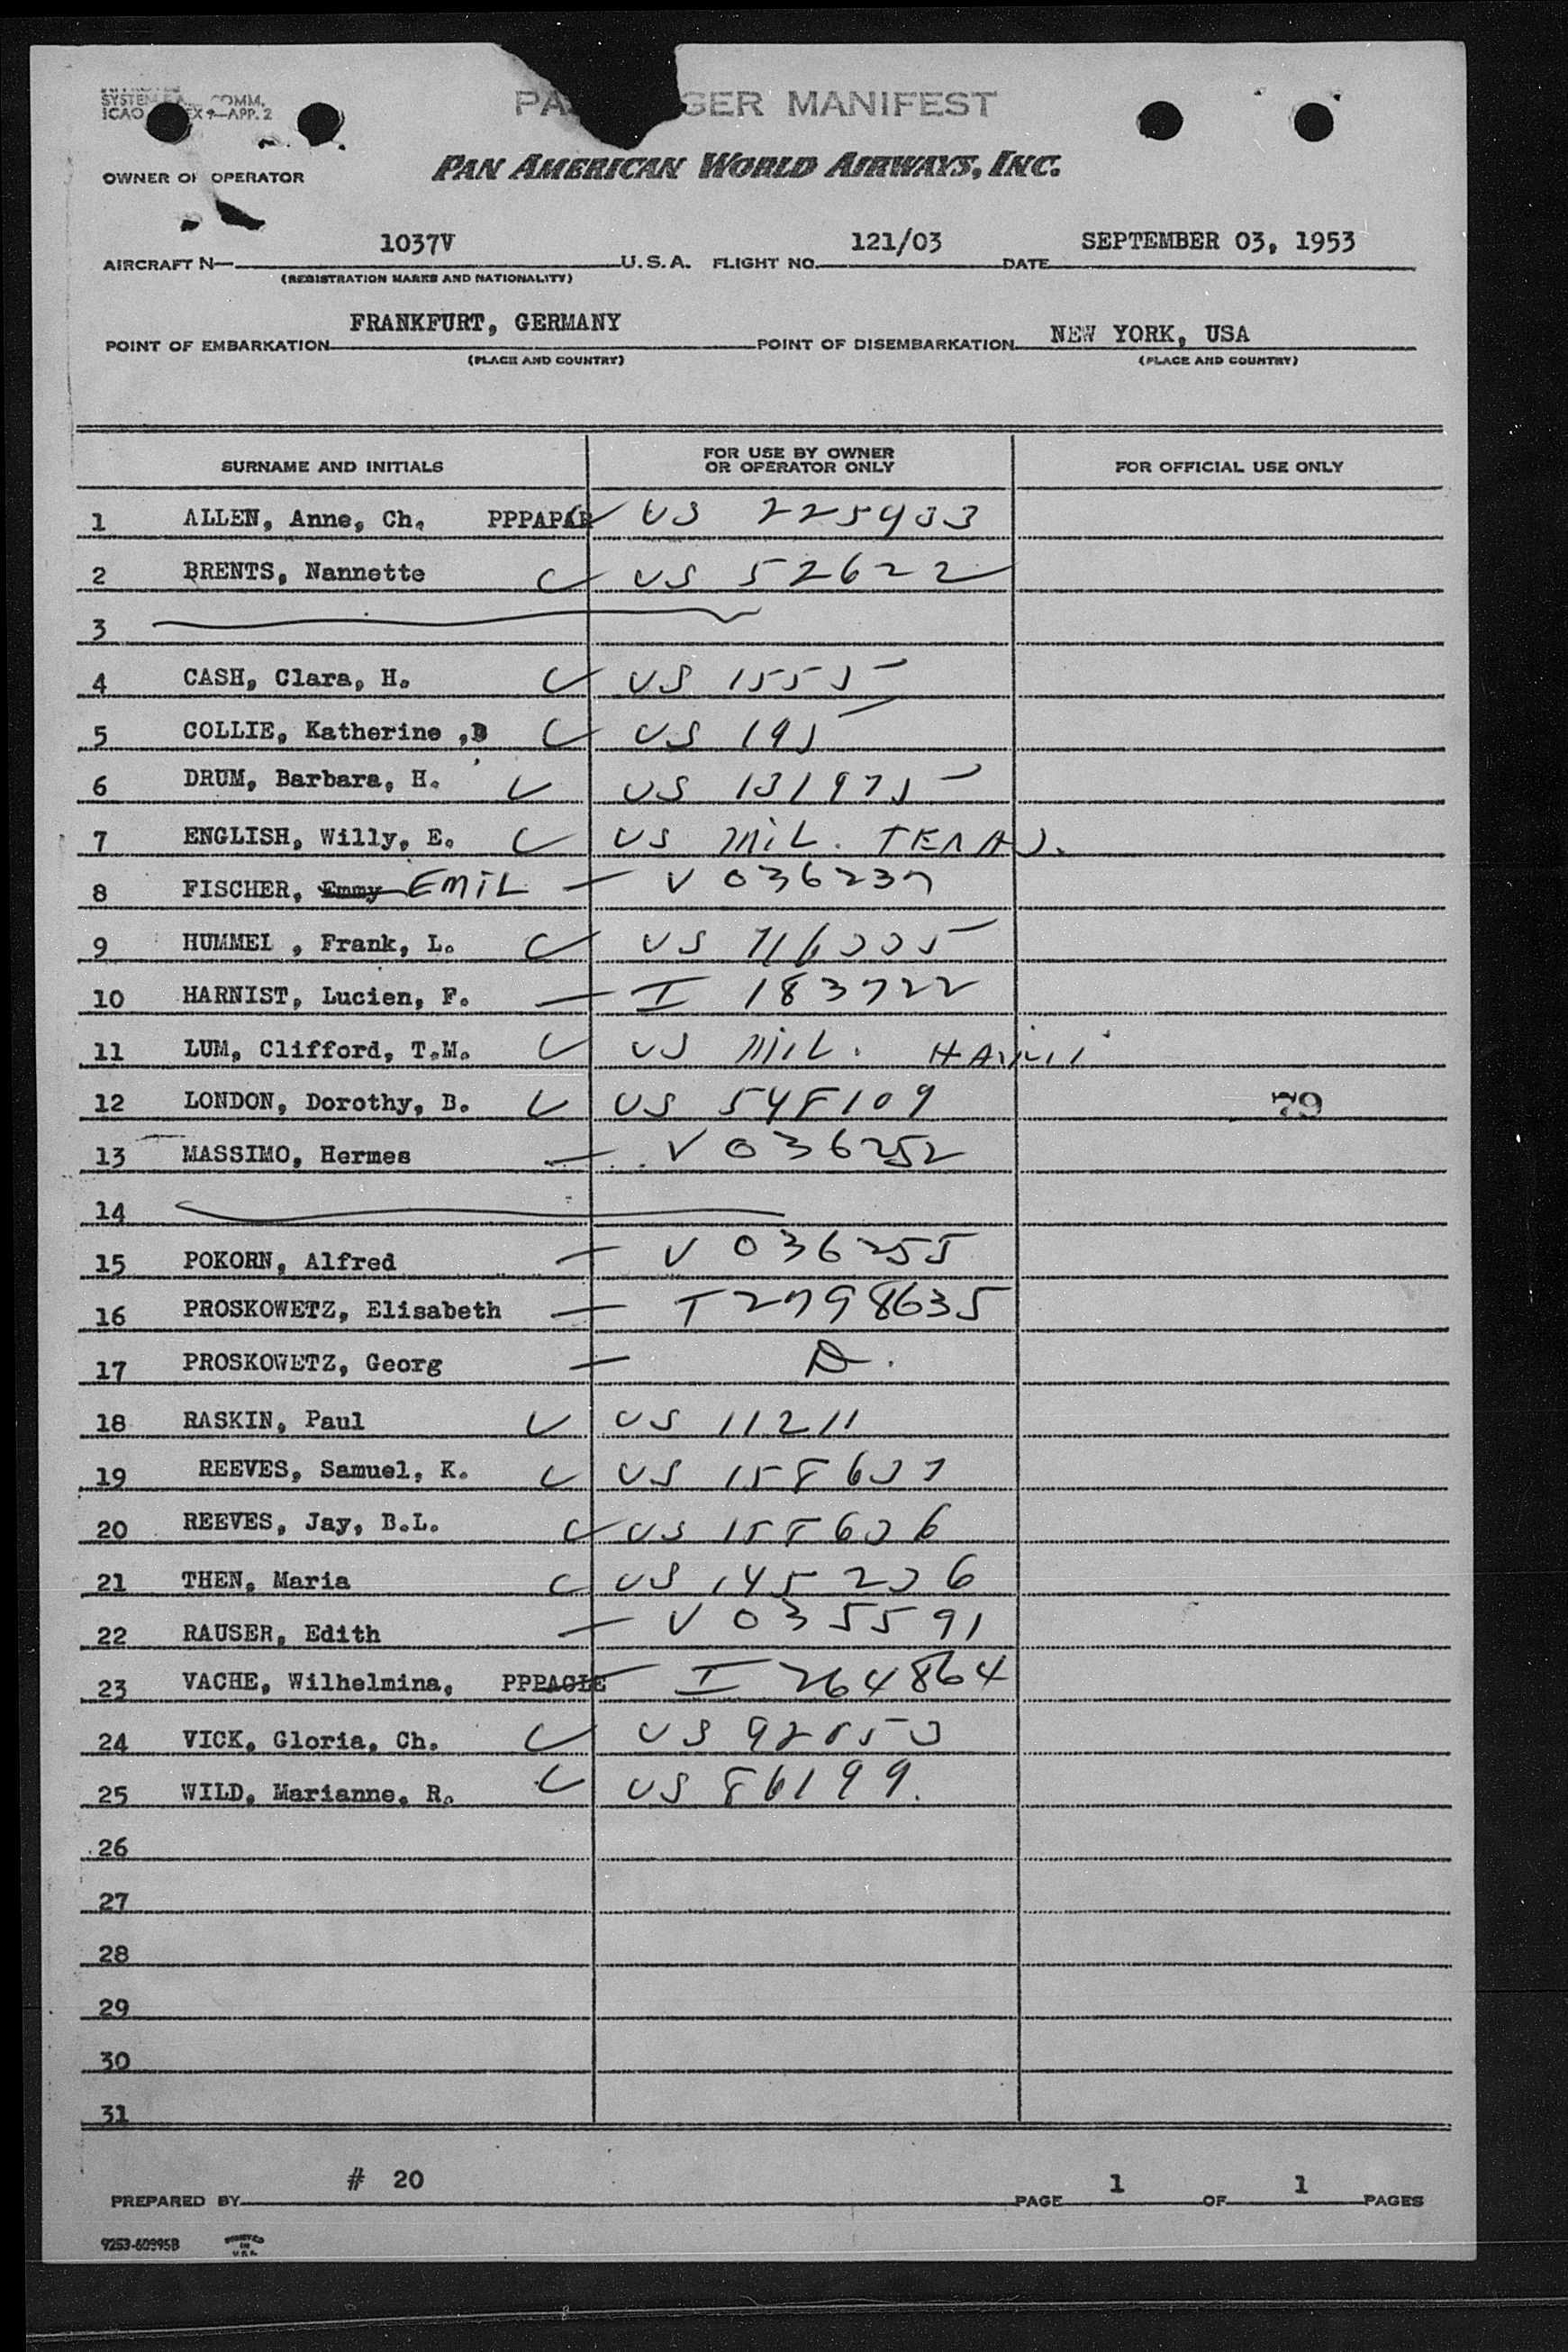 SYSTEM COMM.
ICAO APP. 2
PA GER MANIFEST
OWNER OF OPERATOR PAN AMERICAN WORLD AIRWAYS, INC.
AIRCRAFT N— 1037V U.S.A. FLIGHT NO. 121/03 DATE SEPTEMBER 03, 1953
(REGISTRATION MARKS AND NATIONALITY)
POINT OF EMBARKATION FRANKFURT, GERMANY POINT OF DISEMBARKATION NEW YORK, USA
(PLACE AND COUNTRY) (PLACE AND COUNTRY)
SURNAME AND INITIALS FOR USE BY OWNER OR OPERATOR ONLY FOR OFFICIAL USE ONLY
1 ALLEN, Anne, Ch. PPPAPAR US 225933
2 BRENTS, Nannette US 52622
3
4 CASH, Clara, H. US 1555
5 COLLIE, Katherine ,B US 195
6 DRUM, Barbara, H. US 131975
7 ENGLISH, Willy, E. US MIL.
8 FISCHER, Emmy EMIL V 036237
9 HUMMEL , Frank, L. US
10 HARNIST, Lucien, F. I 183722
11 LUM, Clifford, T.M. US MIL. HAWAII
12 LONDON, Dorothy, B. US 548109 79
13 MASSIMO, Hermes V 036252
14
15 POKORN, Alfred V 036255
16 PROSKOWETZ, Elisabeth T 2798635
17 PROSKOWETZ, Georg
18 RASKIN, Paul US 11211
19 REEVES, Samuel, K. US 158637
20 REEVES, Jay, B.L. US 158636
21 THEN, Maria US 145236
22 RAUSER, Edith V 035591
23 VACHE, Wilhelmina, PPPAGIE I 264864
24 VICK, Gloria, Ch. US
25 WILD, Marianne, R. US 86199.
26
27
28
29
30
31
PREPARED BY # 20 PAGE 1 OF 1 PAGES
9253-60995B PRINTED IN U.S.A.